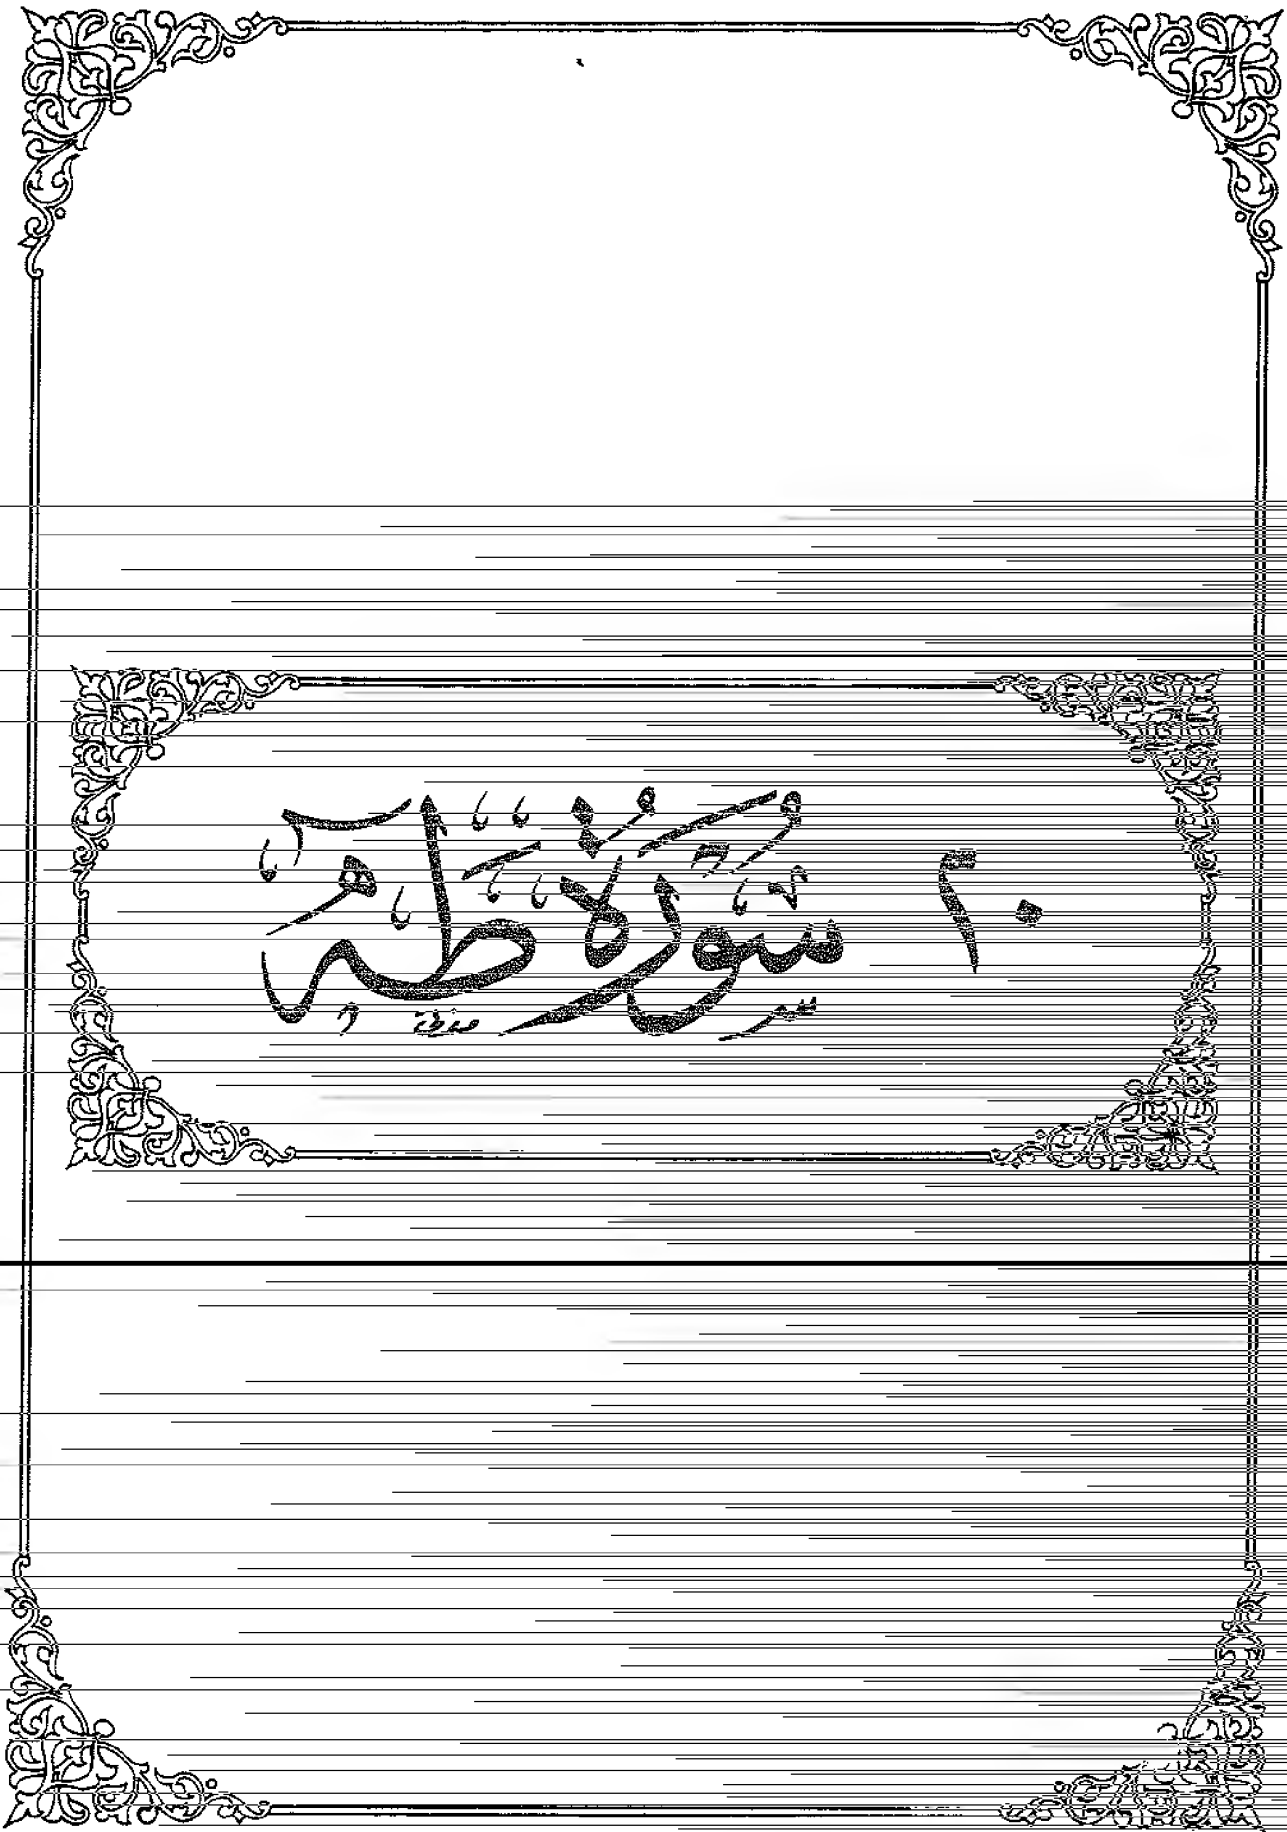 ٢٠ سُورَةُ طه